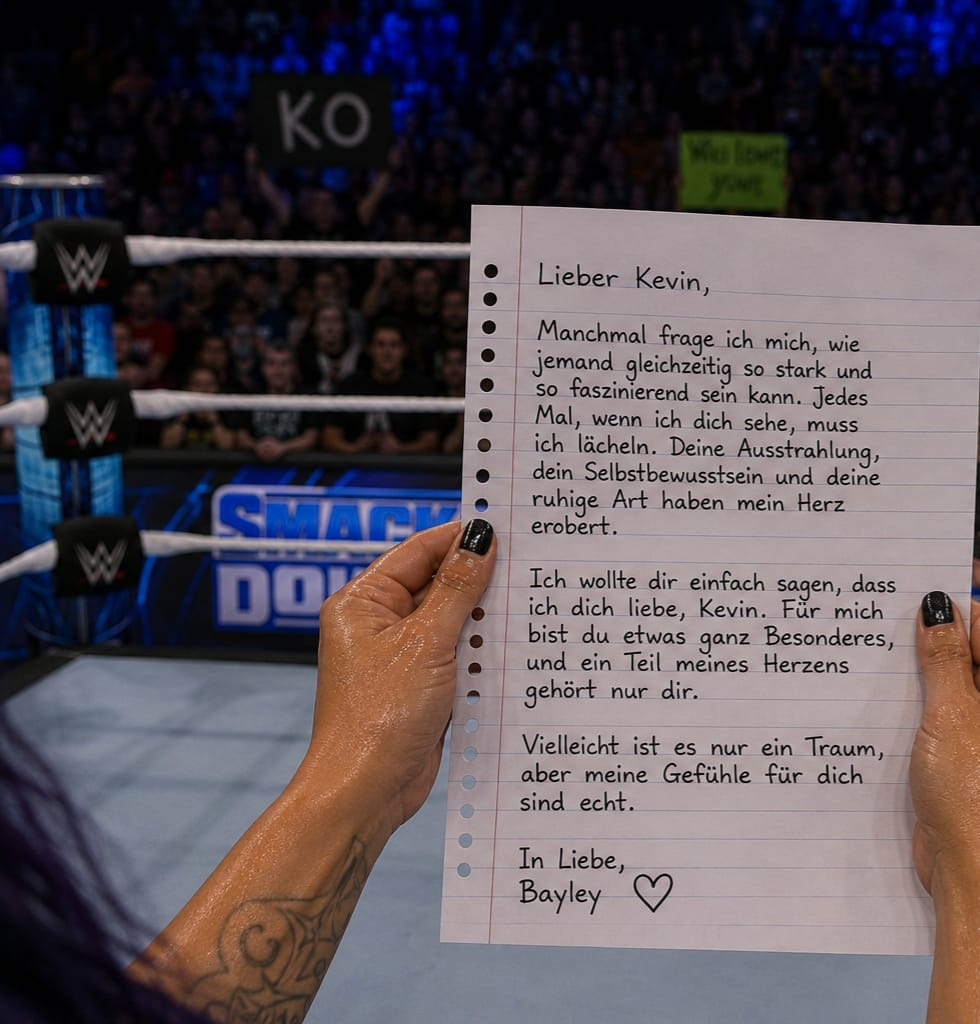 KO
Lieber Kevin,
Manchmal frage ich mich, wie
jemand gleichzeitig so stark und
so faszinierend sein kann. Jedes
Mal, wenn ich dich sehe, muss
ich lächeln. Deine Ausstrahlung,
dein Selbstbewusstsein und deine
ruhige Art haben mein Herz
erobert.
Ich wollte dir einfach sagen, dass
ich dich liebe, Kevin. Für mich
bist du etwas ganz Besonderes,
und ein Teil meines Herzens
gehört nur dir.
Vielleicht ist es nur ein Traum,
aber meine Gefühle für dich
sind echt.
In Liebe,
Bayley
W
W
W
SMACK
DOW